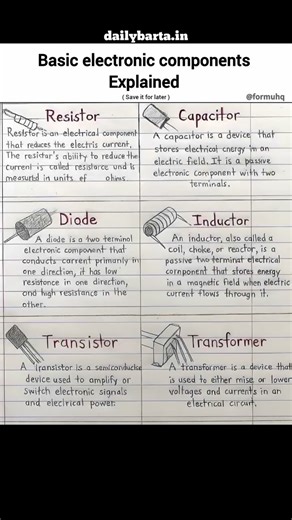 dailybarta.in
Basic electronic components
Explained
( Save it for later )
@formuhq
Resistor
Resistor is an electrical component
that reduces the electric current.
The resistor's ability to reduce the
current is called resistance and is
measured in units of ohms.
Capacitor
A capacitor is a device that
stores electrical energy in an
electric field. It is a passive
electronic component with two
terminals.
Diode
A diode is a two terminal
electronic component that
conducts current primarily in
one direction, it has low
resistance in one direction,
and high resistance in the
other.
Inductor
An inductor, also called a
coil, choke, or reactor, is a
passive two terminal electrical
component that stores energy
in a magnetic field when electric
current flows through it.
Transistor
A transistor is a semiconductor
device used to amplify or
switch electronic signals
and electrical power.
Transformer
A transformer is a device that
is used to either raise or lower
voltages and currents in an
electrical circuit.